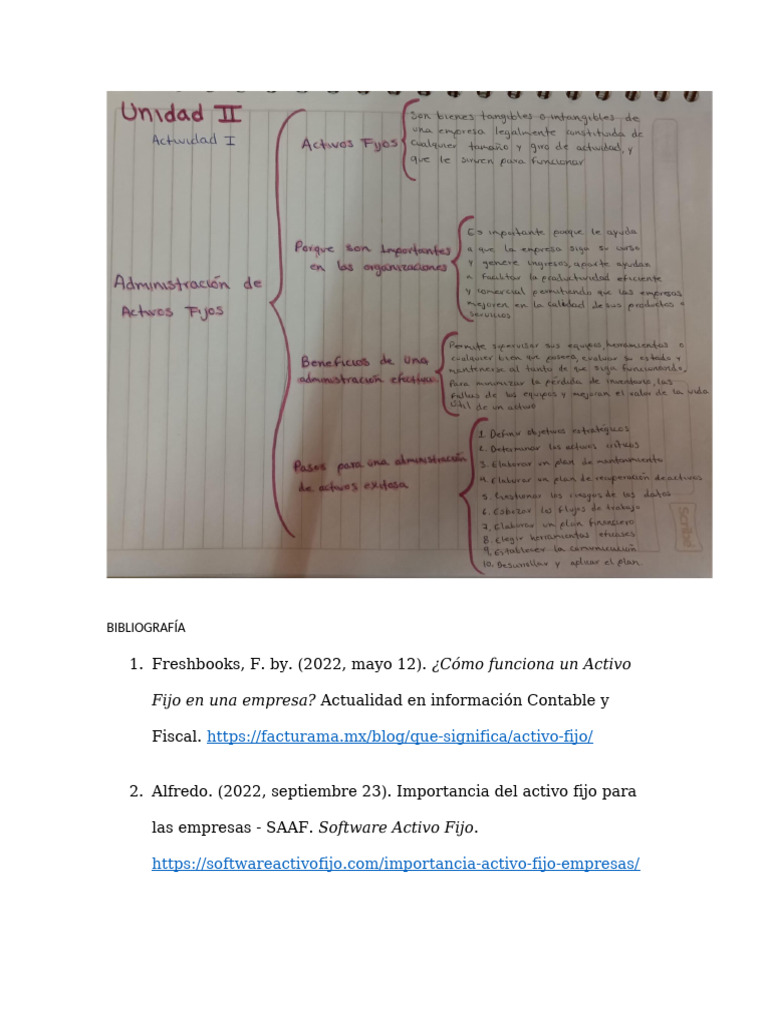 Unidad II
Actividad I
Administración de
Activos Fijos
Activos Fijos
Son bienes tangibles o intangibles de
una empresa legalmente constituida de
cualquier tamaño y giro de actividad, y
que le sirven para funcionar
Porque son importantes
en las organizaciones
Es importante porque le ayuda
a que la empresa siga su curso
y genere ingresos, aparte ayudan
a facilitar la productividad eficiente
y comercial permitiendo que las empresas
mejoren en la calidad de sus productos o
servicios
Beneficios de una
administración efectiva
Permite supervisar sus equipos, herramientas o
cualquier bien que posera, evaluar su estado y
mantenerse al tanto de que siga funcionando,
Para minimizar la pérdida de inventario, las
fallas de los equipos y mejoran el valor de la vida
útil de un activo
Pasos para una administración
de activos exitosa
1. Definir objetivos estratégicos
2. Determinar los activos críticos
3. Elaborar un plan de mantenimiento
4. Elaborar un plan de recuperación de activos
5. Gestionar los riesgos de los datos
6. Esbozar los flujos de trabajo
7. Elaborar un plan financiero
8. Elegir herramientas eficaces
9. Establecer la comunicación
10. Desarrollar y aplicar el plan.
Scribe
BIBLIOGRAFÍA
1. Freshbooks, F. by. (2022, mayo 12). ¿Cómo funciona un Activo
Fijo en una empresa? Actualidad en información Contable y
Fiscal. https://facturama.mx/blog/que-significa/activo-fijo/
2. Alfredo. (2022, septiembre 23). Importancia del activo fijo para
las empresas - SAAF. Software Activo Fijo.
https://softwareactivofijo.com/importancia-activo-fijo-empresas/